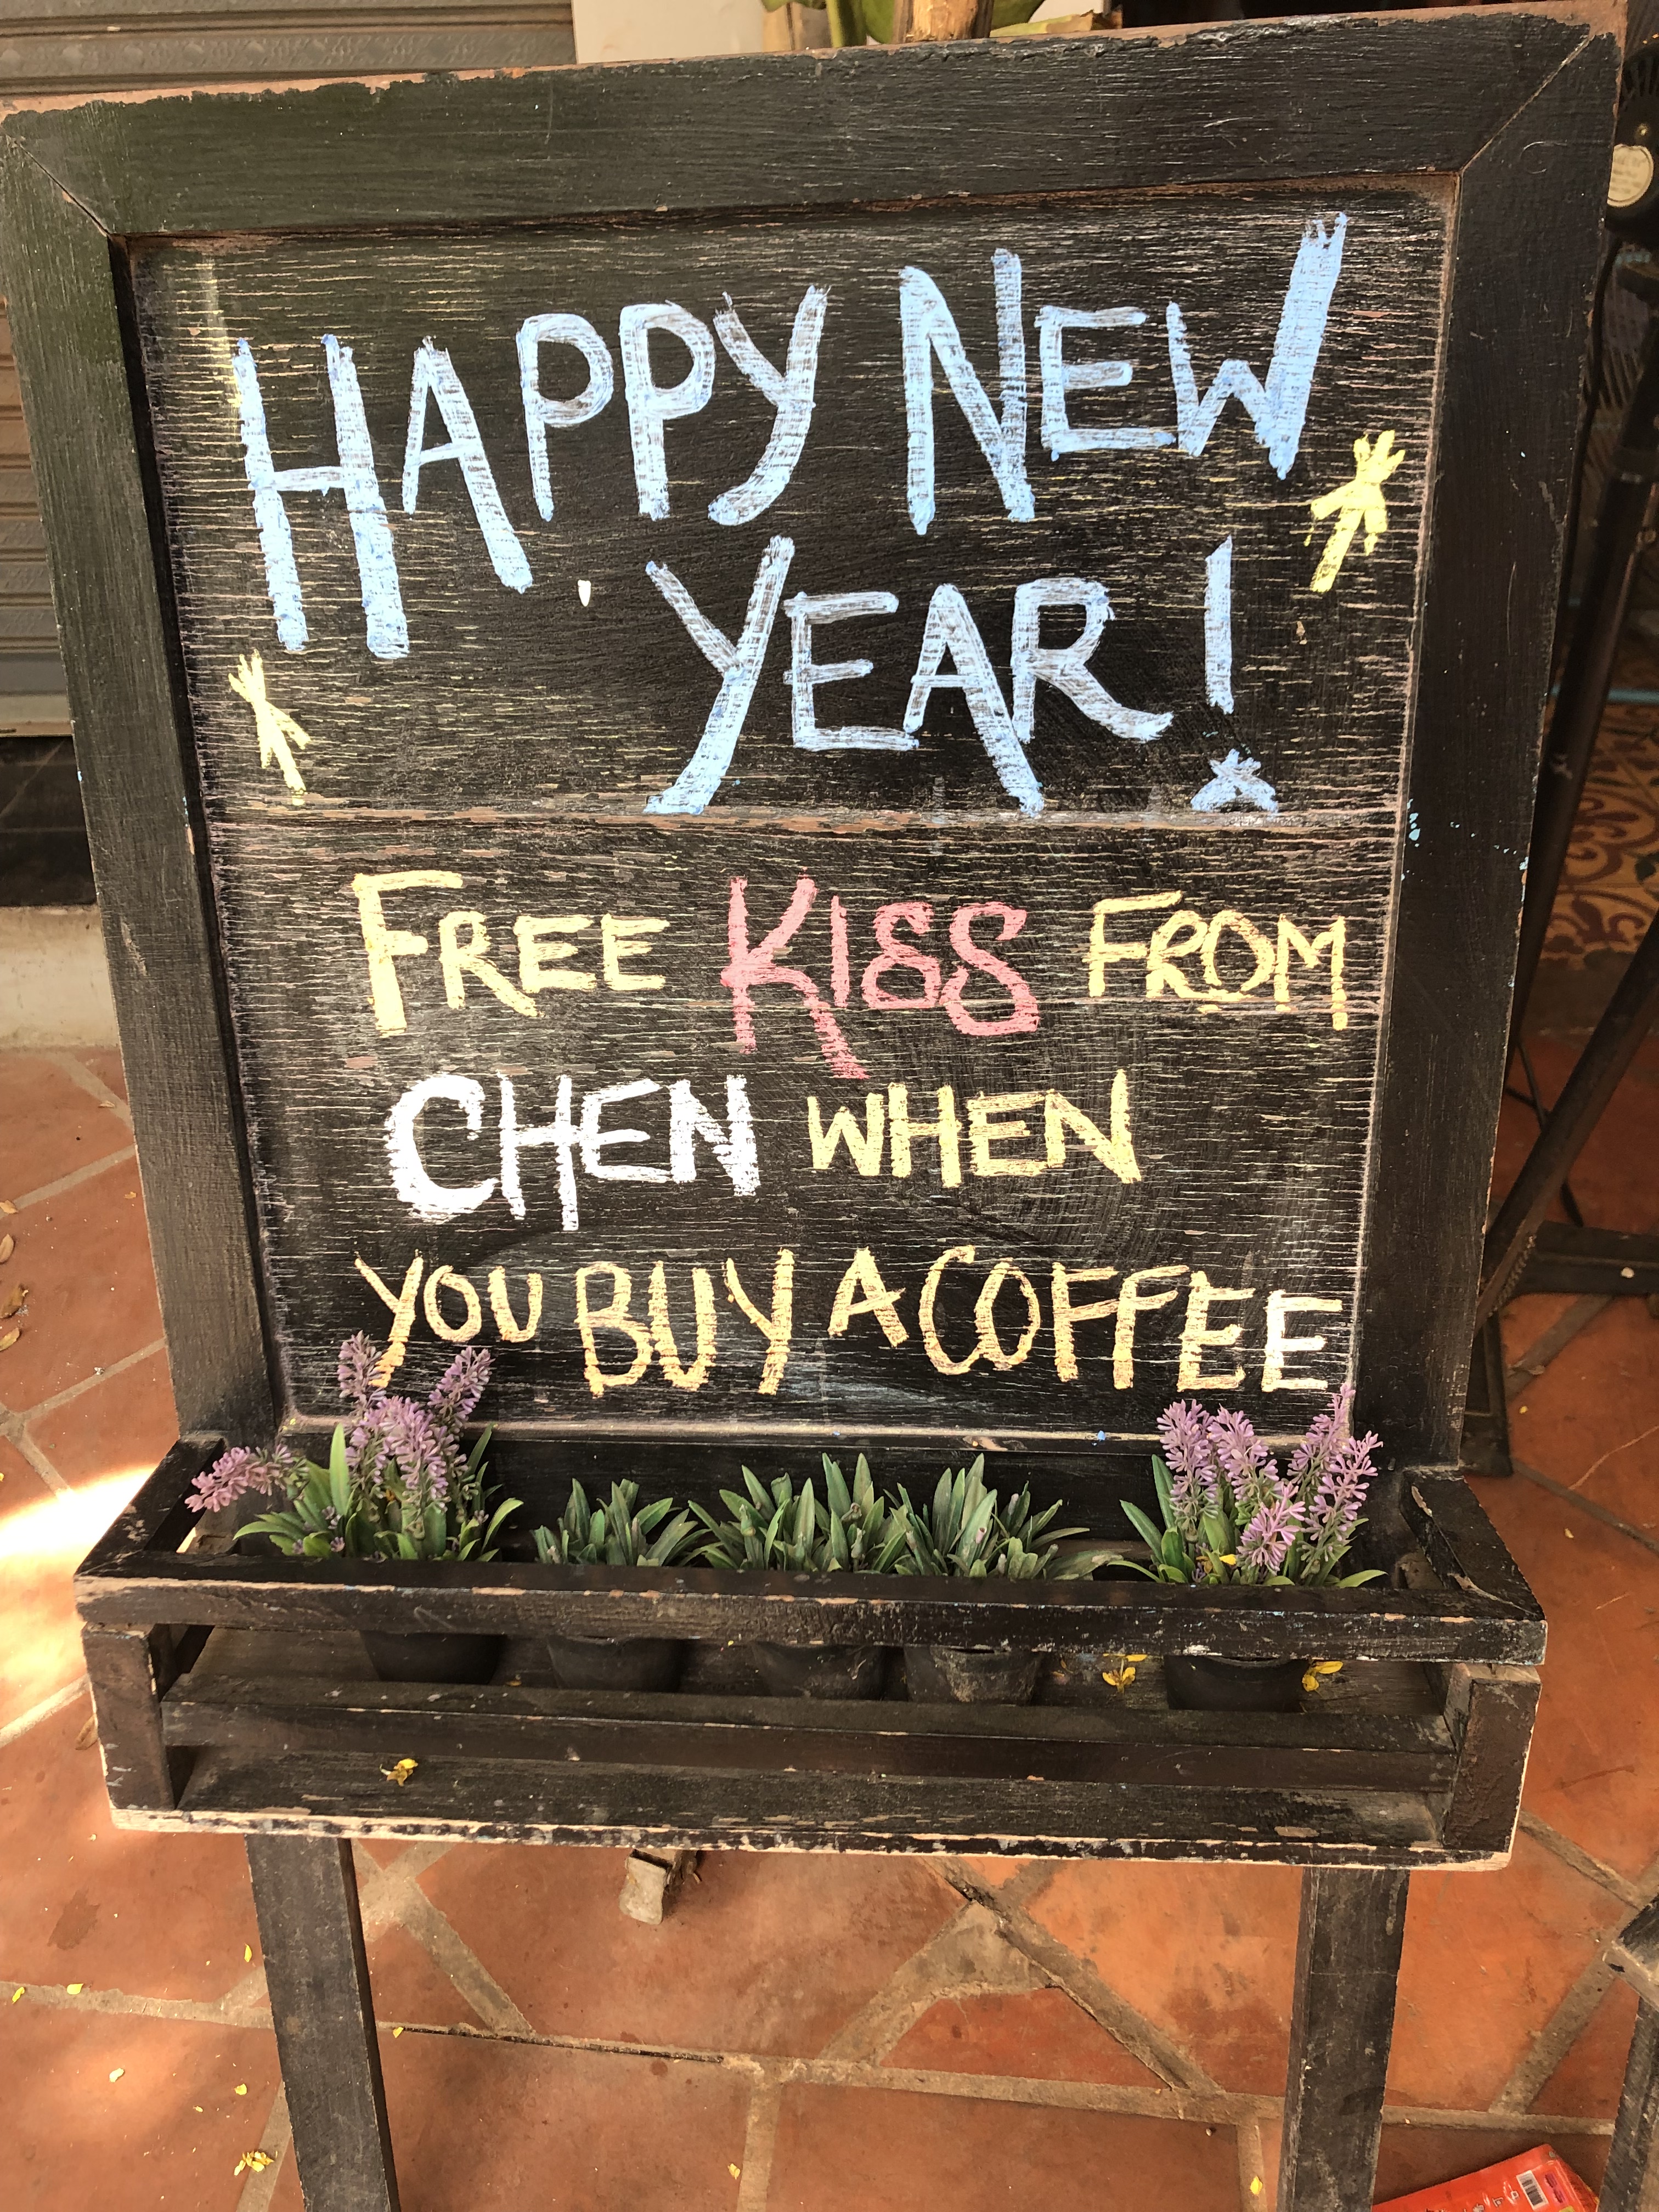 HAPPY NEW
YEAR!
FREE KISS FROM
CHEN WHEN
YOU BUY A COFFEE